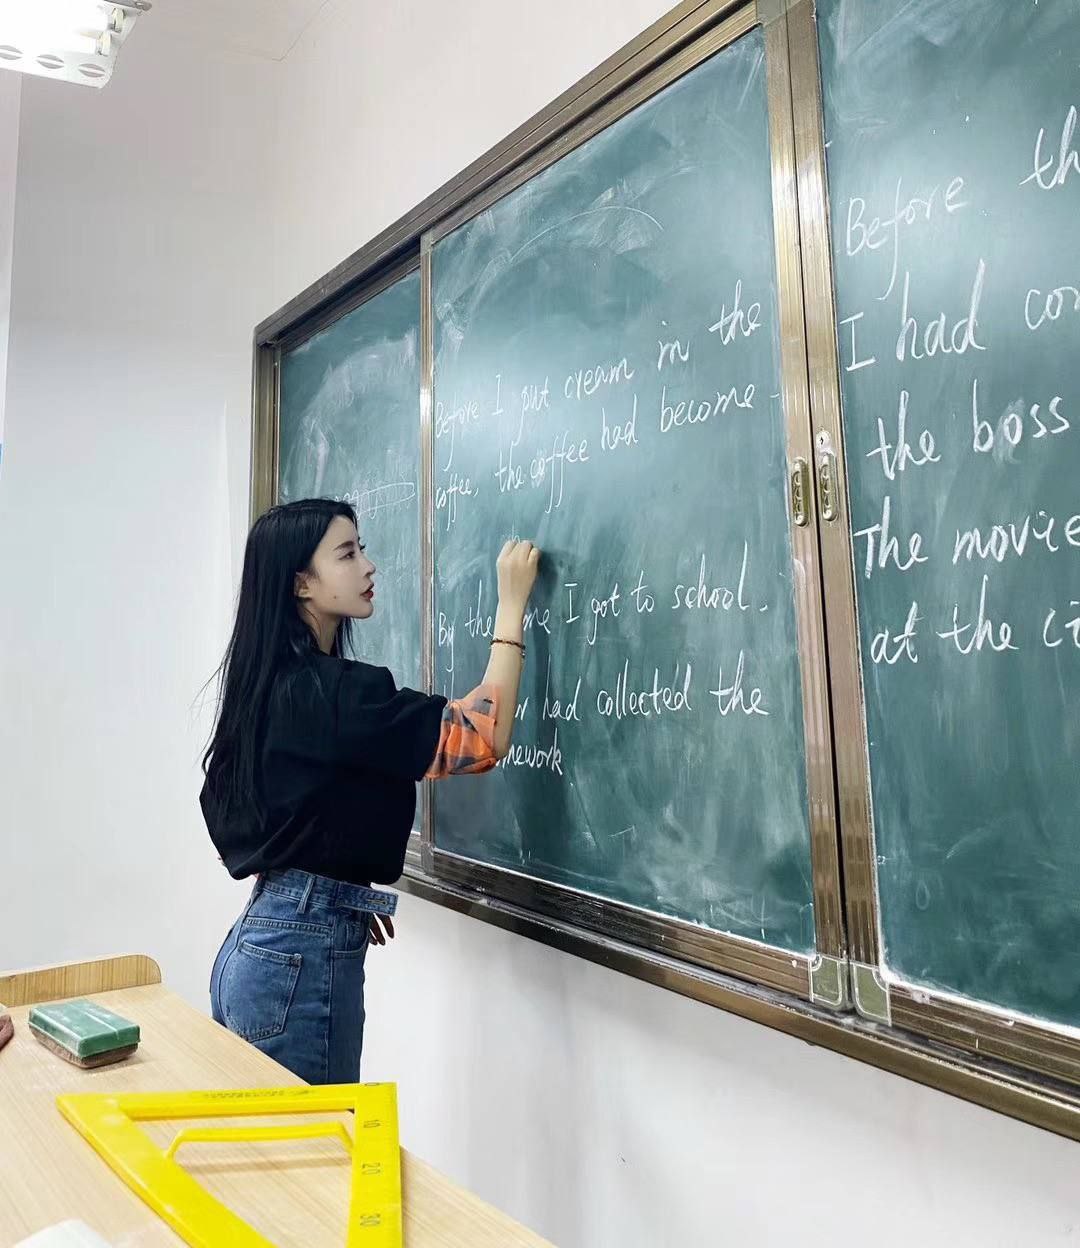 Before I put cream in the
coffee, the coffee had become
By the me I got to school.
had collected the
mework
Before th
I had co
the boss
The movie
at the ci
10
20
30